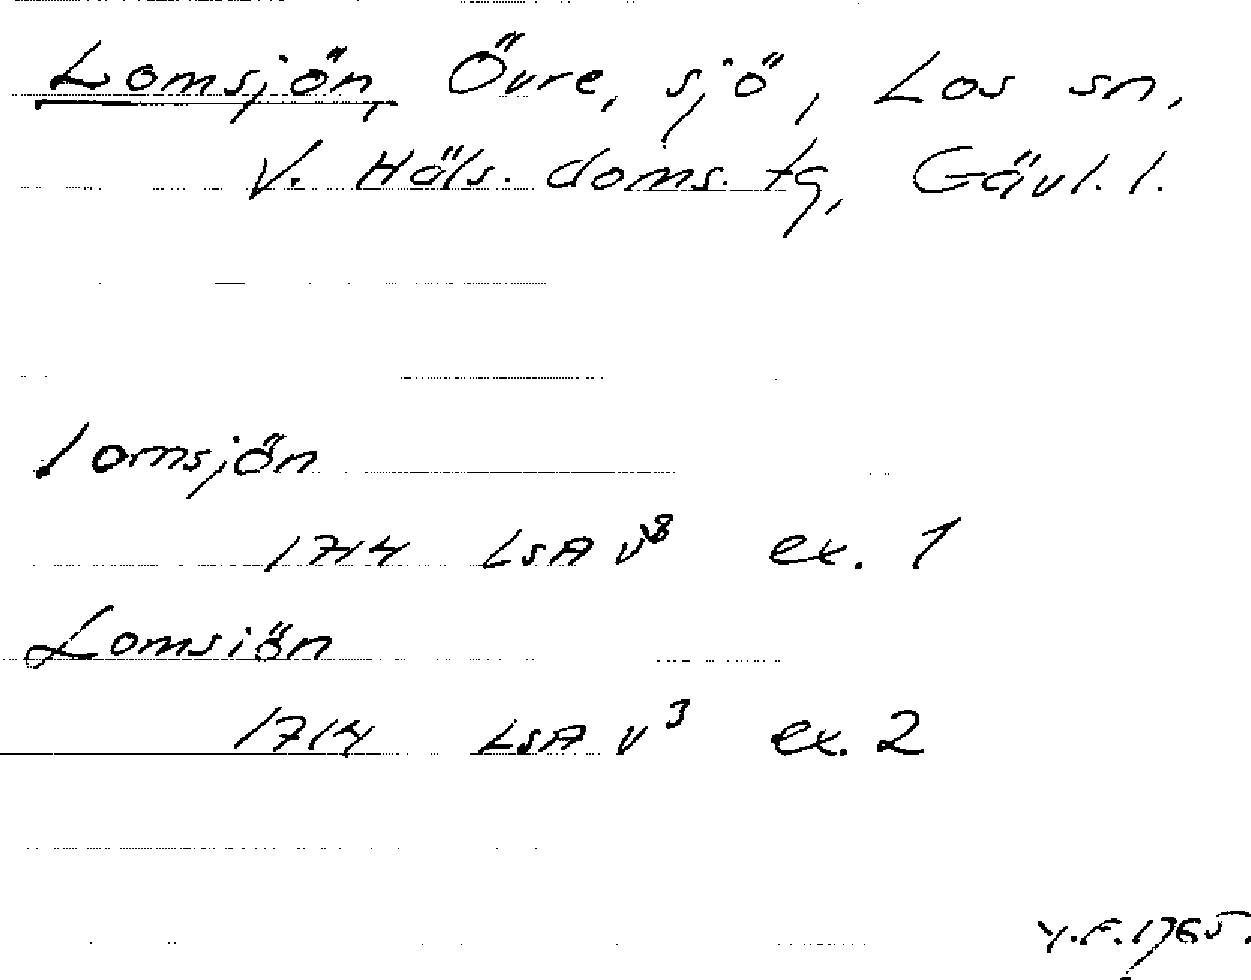 Lomsjön, Övre, sjö, Los sn,
V. Häls. doms. tg, Gävl. l.
lomsjön
1714 LsA v⁸ ex. 1
Lomsiön
1714 LsA v³ ex. 2
Y.F. 1965.